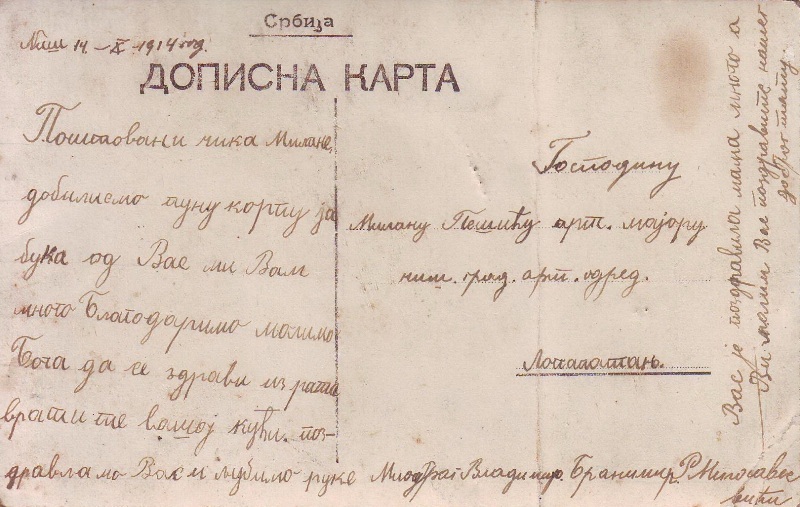 Србија
Ниш 14. – X – 1914 год.
ДОПИСНА КАРТА
Поштовани чика Милане,
добилисмо пуну корпу за
бука од Вас ми Вам
много благодаримо молимо
Бога да се здрави из рата
вратите вашој кући. поз-
дравламо Вас и љубимо руке Миодраг Владимир, Бранимир Р. Милосавље
вићи
Господину
Милану Пешићу арт. мајору
ниш. град. арт. одред.
Вас је поздравила мама много а
Ви молим Вас поздравите нашег
доброг тату.